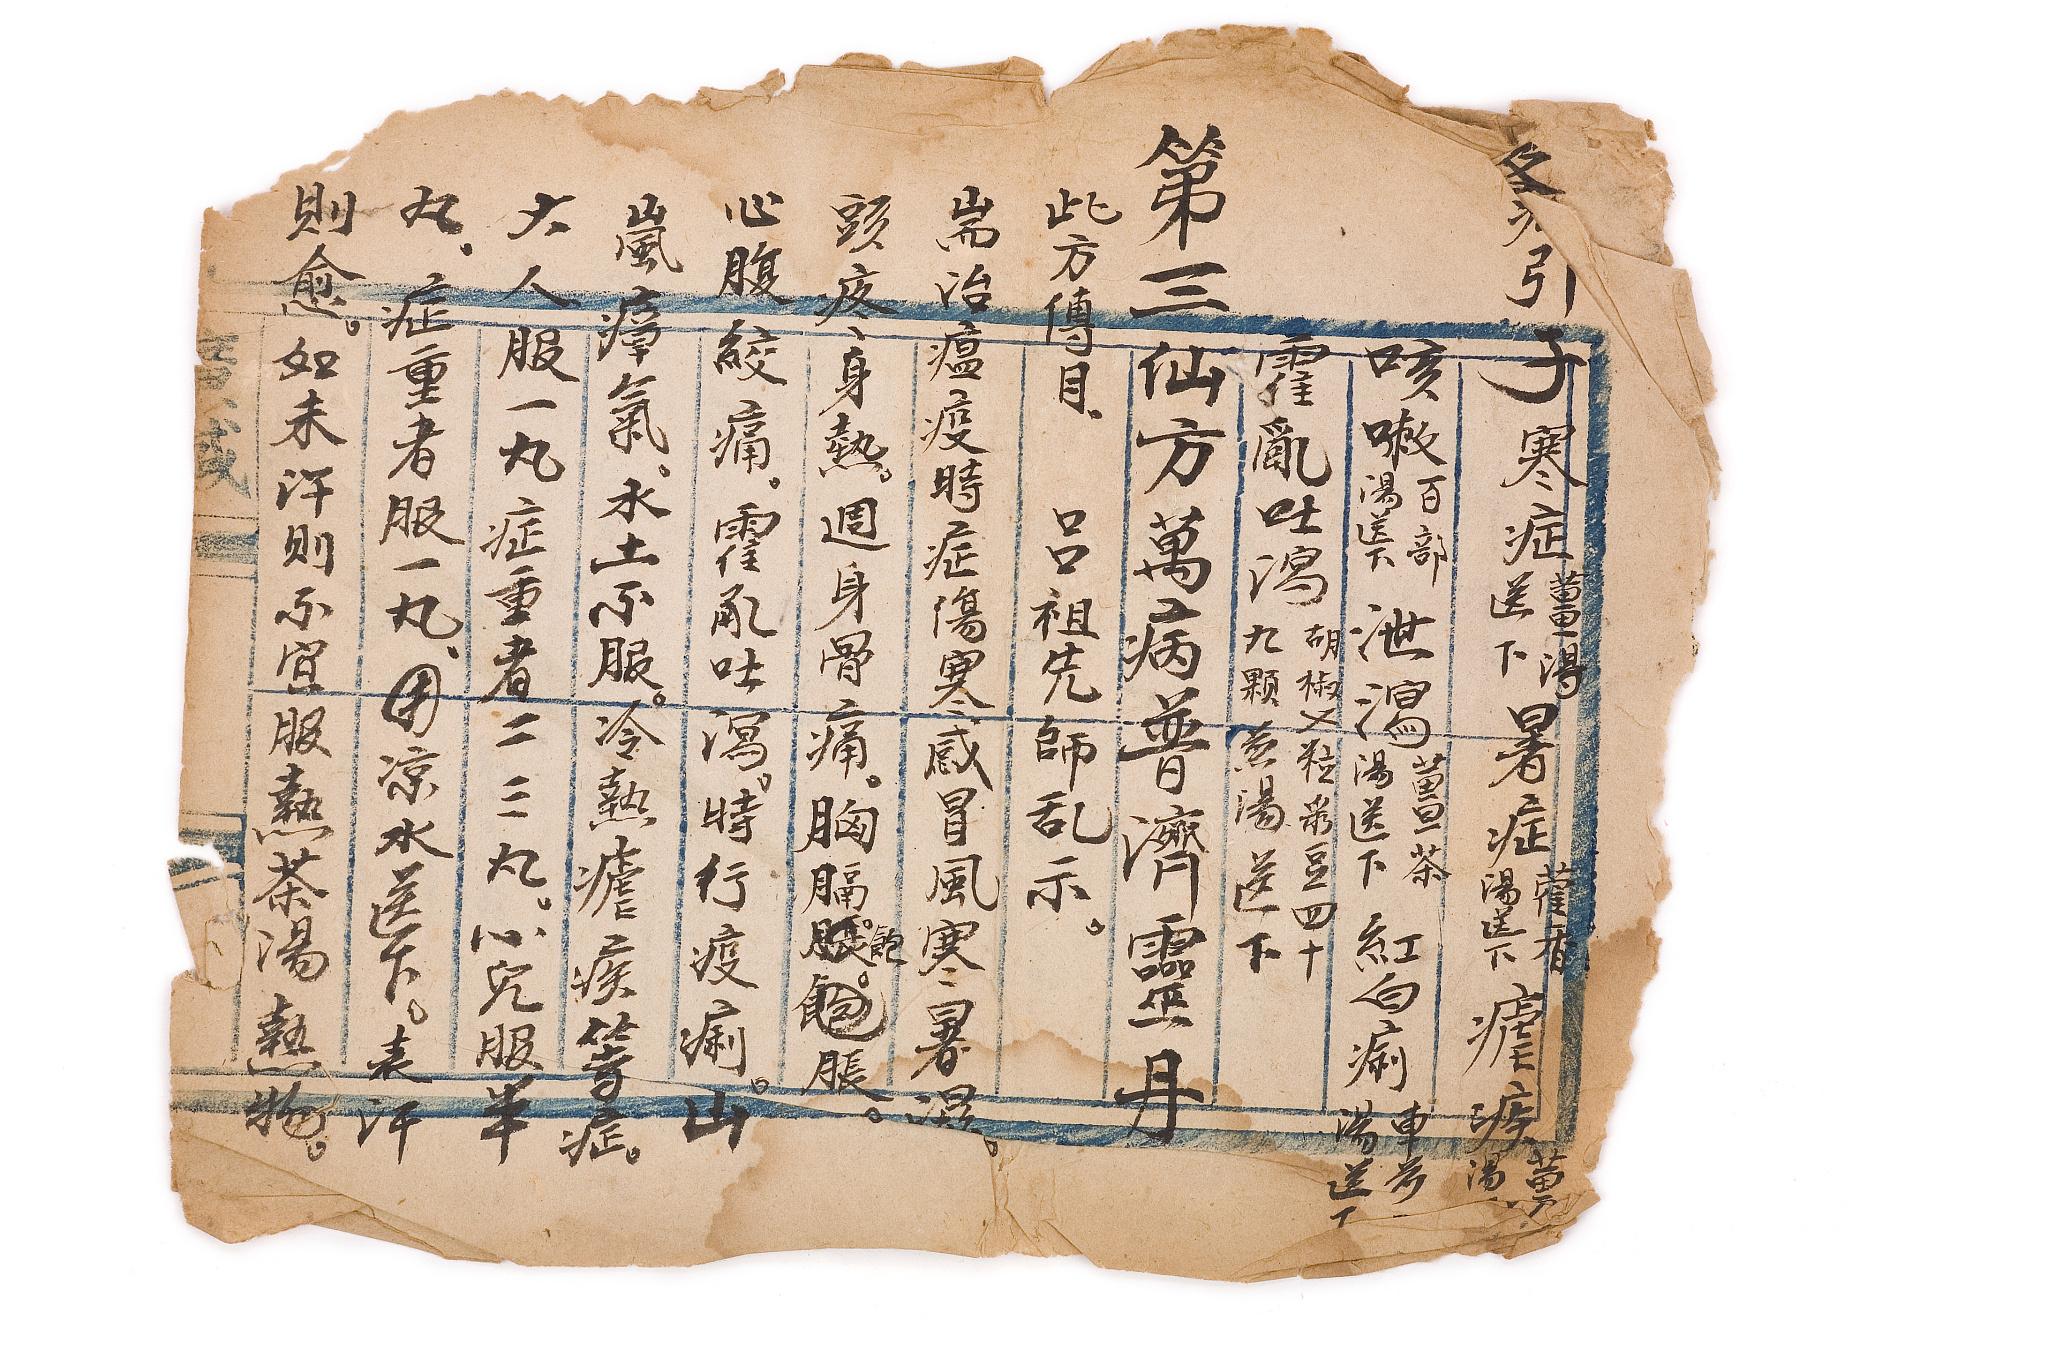 各病引子 寒症薑湯送下 暑症藿香湯送下 瘧疾薑湯
咳嗽百部湯送下 泄瀉薑茶湯送下 紅白痢車前湯送下
霍亂吐瀉胡椒七粒菉豆四十九顆煎湯送下
第三仙方萬病普濟靈丹
此方傳自。 呂祖先師乩示。
耑治瘟疫時症傷寒感冒風寒暑濕。
頭疼身熱。週身骨痛。胸膈脹飽脹。
心腹絞痛。霍乱吐瀉。時行疫痢。山
嵐瘴氣。水土不服。冷熱瘧疾等症。
大人服一丸症重者二三丸。小兒服半
丸、症重者服一丸、用凉水送下。表汗
則愈。如未汗則不宜服熱茶湯熱物。